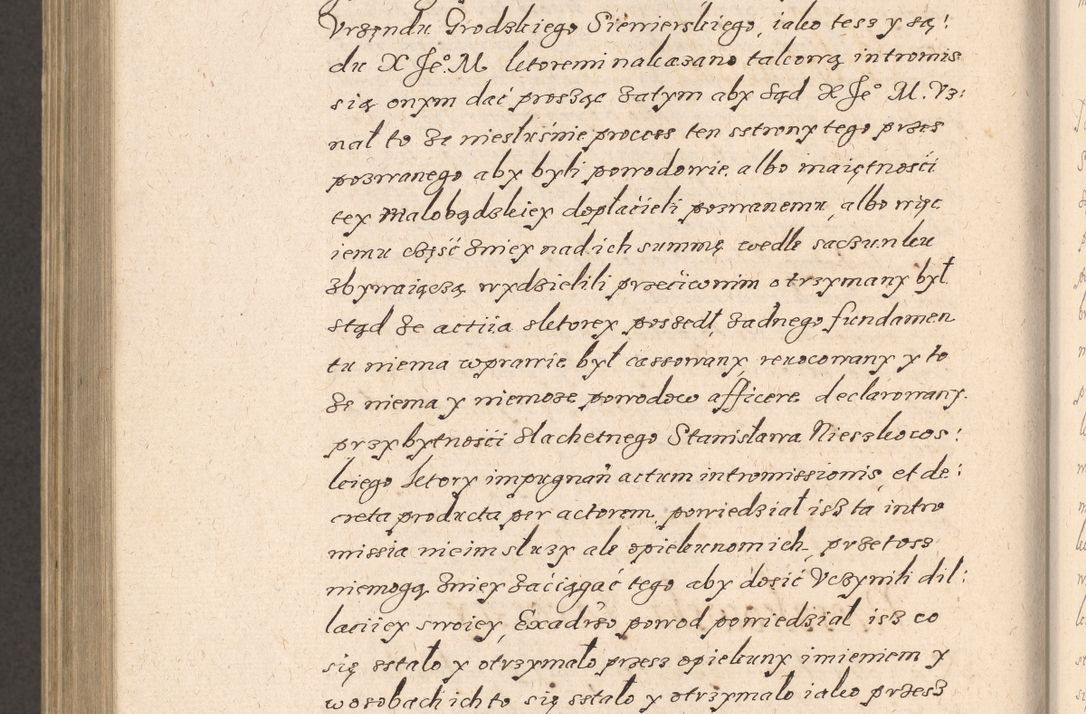 Vrzęndu Grodzkiego Siewierskiego, iako tesz y są:
du X Je⁰. M ktoremi nakazano takową intromis
sią onym dać prosząc zatym aby sąd X Je⁰ M. Vz:
nał to że niesłuśnie process ten sstrony tego przes
pozwanego aby byli powodowie albo maiętności
tey Małobądzkiey dopłaćieli pozwanemu, albo więc
iemu częsć zniey nad ich summę wedle saczunku
zbywaiączą wydzielili przećiwnim otrzymany był
stąd że actiia zktorey poszedł, żadnego fundamen
tu niema wprawie był cassowany, reuocowany y to
że niema y niemoże powodow afficere declarowany.
przybytnośći slachetnego Stanisława Nieszkows:
kiego ktory impugnań actum intromissionis, et de:
creta producta per actorem, powiedział isz ta intro
missia nieim służy ale opiekunom ich, przetosz
niemogą zniey zaćiągać tego aby dosić Vczynili dil:
laciiey swoiey, Exadrso powod powiedział isz co
się sstało y otrzymało przesz opiekuny imieniem y
wosobach ich to się sstało y otrzymało iako przesz